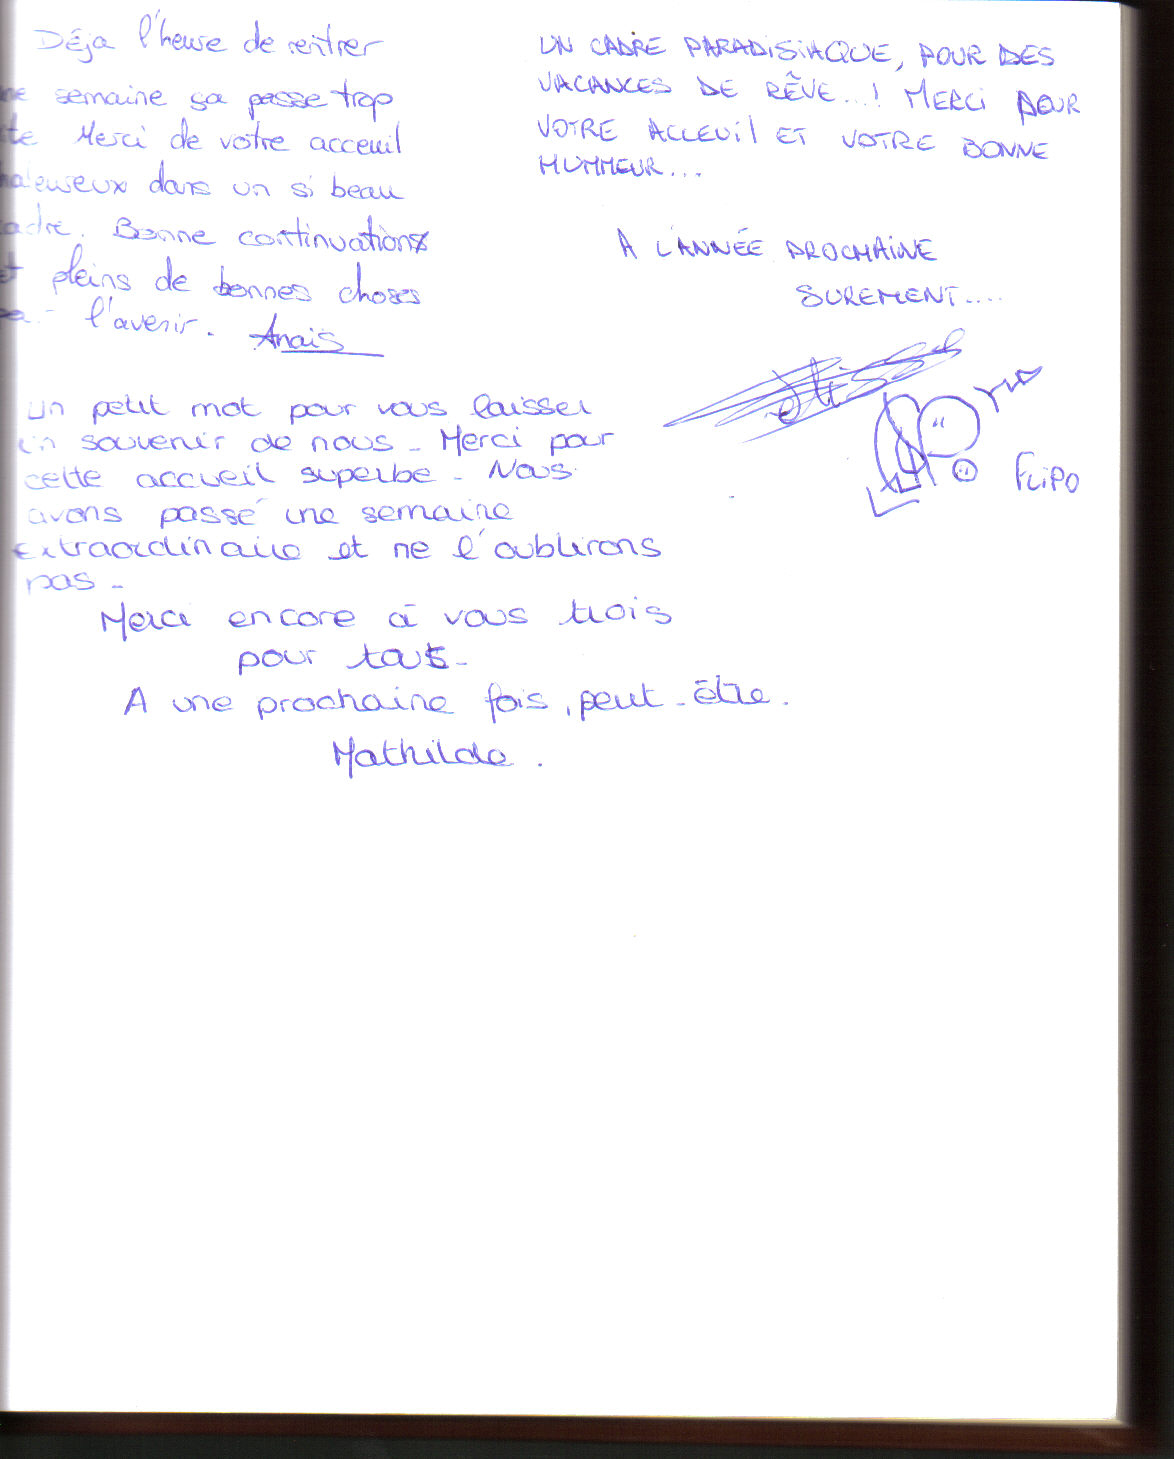 Déja l'heure de rentrer
semaine ça passe trop
Merci de votre acceuil
dans un si beau
Bonne continuation
pleins de bonnes choses
l'avenir. Anaïs
Un petit mot pour vous laisser
un souvenir de nous - Merci pour
cette accueil superbe - Nous
avons passé une semaine
extraordinaire et ne l'oublirons
pas -
Merci encore à vous trois
pour tout -
A une prochaine fois, peut-être.
Mathilde.
UN CADRE PARADISIAQUE, POUR DES
VACANCES DE RÊVE...! MERCI POUR
VOTRE ACCEUIL ET VOTRE BONNE
HUMMEUR...
A L'ANNÉE PROCHAINE
SUREMENT....
FLIPO